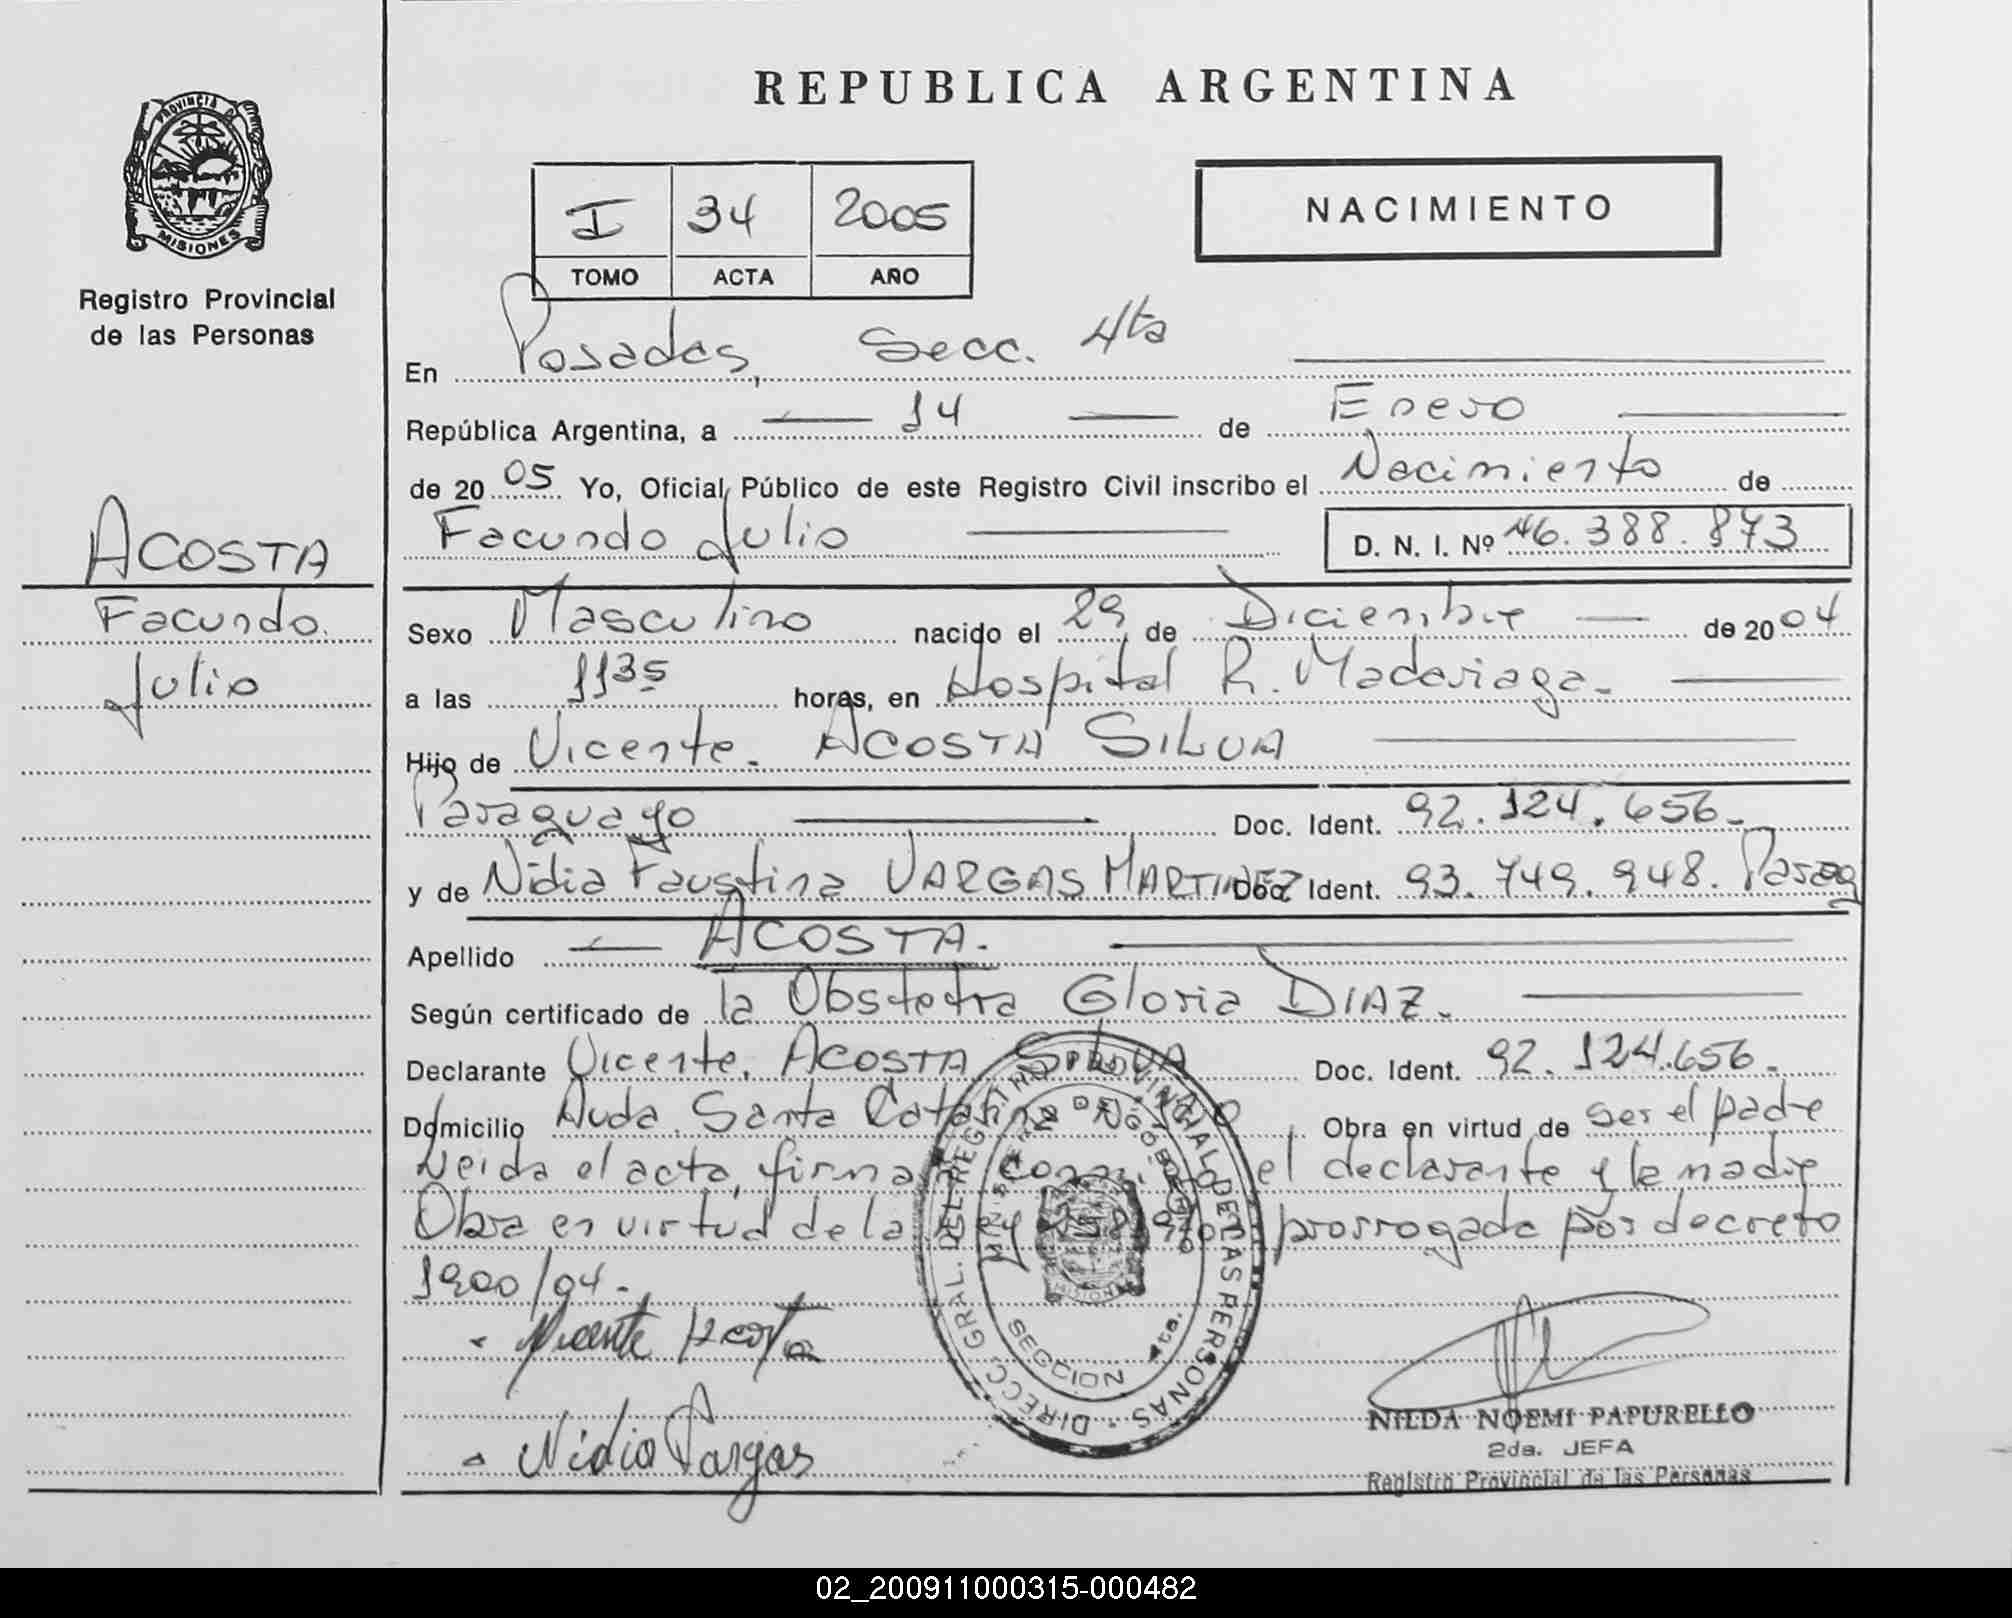 REPUBLICA ARGENTINA
PROVINCIA DE
MISIONES
Registro Provincial
de las Personas
I 34 2005
TOMO ACTA AÑO
NACIMIENTO
En Posadas, Secc. 4ta
República Argentina, a 14 de Enero
de 20 05 Yo, Oficial Público de este Registro Civil inscribo el Nacimiento de
Facundo Julio D. N. I. Nº 46.388.873
ACOSTA
Facundo.
Julio
Sexo Masculino nacido el 29 de Diciembre de 20 04
a las 1135 horas, en Hospital R. Madariaga.
Hijo de Vicente. ACOSTA SILVA
Paraguayo Doc. Ident. 92.124.656.
y de Nidia Faustina VARGAS MARTINEZ Doc. Ident. 93.749.948. Parag
Apellido ACOSTA.
Según certificado de la Obstetra Gloria DIAZ.
Declarante Vicente. ACOSTA SILVA Doc. Ident. 92.124.656.
Domicilio Avda. Santa Catalina Nº Obra en virtud de ser el padre
Leida el acta, firma el declarante y la madre
Obra en virtud de la Ley prorrogada por decreto
1900/04.
Vicente Acosta
Nidia Vargas
DIRECC. GRAL. DEL REGISTRO PROVINCIAL DE LAS PERSONAS
MINISTERIO DE GOBIERNO
MISIONES
SECCION 4ta.
NILDA NOEMI PAPURELLO
2da. JEFA
Registro Provincial de las Personas
02_200911000315-000482